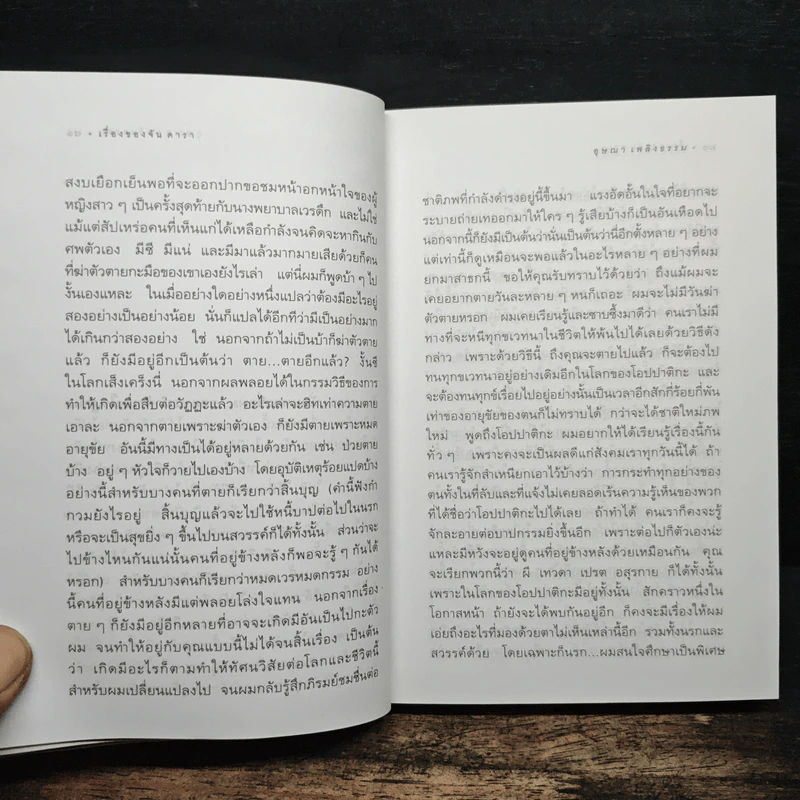 ๑๒ • เรื่องของจัน ดารา
สงบเยือกเย็นพอที่จะออกปากขอชมหน้าอกหน้าใจของผู้
หญิงสาว ๆ เป็นครั้งสุดท้ายกับนางพยาบาลเวรตึก และไม่ใช่
แม้แต่สัปเหร่อคนที่เห็นแก่ได้เหลือกำลังจนคิดจะหากินกับ
ศพตัวเอง มีซี มีแน่ และมีมาแล้วมากมายเสียด้วยก็คน
ที่ฆ่าตัวตายกะมือของเขาเองยังไรเล่า แต่นี่ผมก็พูดบ้า ๆ ไป
งั้นเองแหละ ในเมื่ออย่างใดอย่างหนึ่งแปลว่าต้องมีอะไรอยู่
สองอย่างเป็นอย่างน้อย นั่นก็แปลได้อีกทีว่ามีเป็นอย่างมาก
ได้เกินกว่าสองอย่าง ใช่ นอกจากถ้าไม่เป็นบ้าก็ฆ่าตัวตาย
แล้ว ก็ยังมีอยู่อีกเป็นต้นว่า ตาย...ตายอีกแล้ว? งั้นซี
ในโลกเส็งเคร็งนี่ นอกจากผลพลอยได้ในกรรมวิธีของการ
ทำให้เกิดเพื่อสืบต่อวัฏฏะแล้ว อะไรเล่าจะฮิทเท่าความตาย
เอาละ นอกจากตายเพราะฆ่าตัวเอง ก็ยังมีตายเพราะหมด
อายุขัย อันนี้มีทางเป็นได้อยู่หลายด้วยกัน เช่น ป่วยตาย
บ้าง อยู่ ๆ หัวใจก็วายไปเองบ้าง โดยอุบัติเหตุร้อยแปดบ้าง
อย่างนี้สำหรับบางคนที่ตายก็เรียกว่าสิ้นบุญ (คำนี้ฟังกำ
กวมยังไรอยู่ สิ้นบุญแล้วจะไปใช้หนี้บาปต่อไปในนรก
หรือจะเป็นสุขยิ่ง ๆ ขึ้นไปบนสวรรค์ก็ได้ทั้งนั้น ส่วนว่าจะ
ไปข้างไหนกันแน่นั้นคนที่อยู่ข้างหลังก็พอจะรู้ ๆ กันได้
หรอก) สำหรับบางคนก็เรียกว่าหมดเวรหมดกรรม อย่าง
นี้คนที่อยู่ข้างหลังมีแต่พลอยโล่งใจแทน นอกจากเรื่อง
ตาย ๆ ก็ยังมีอยู่อีกหลายที่อาจจะเกิดมีอันเป็นไปกะตัว
ผม จนทำให้อยู่กับคุณแบบนี้ไม่ได้จนสิ้นเรื่อง เป็นต้น
ว่า เกิดมีอะไรก็ตามทำให้ทัศนวิสัยต่อโลกและชีวิตนี้
สำหรับผมเปลี่ยนแปลงไป จนผมกลับรู้สึกภิรมย์ชมชื่นต่อ
อุษณา เพลิงธรรม •
ชาติภพที่กำลังดำรงอยู่นี้ขึ้นมา แรงอัดอั้นในใจที่อยากจะ
ระบายถ่ายเทออกมาให้ใคร ๆ รู้เสียบ้างก็เป็นอันเหือดไป
นอกจากนี้ก็ยังมีเป็นต้นว่านั่นเป็นต้นว่านี่อีกตั้งหลาย ๆ อย่าง
แต่เท่านี้ก็ดูเหมือนจะพอแล้วในอะไรหลาย ๆ อย่างที่ผม
ยกมาสาธกนี้ ขอให้คุณรับทราบไว้ด้วยว่า ถึงแม้ผมจะ
เคยอยากตายวันละหลาย ๆ หนก็เถอะ ผมจะไม่มีวันฆ่า
ตัวตายหรอก ผมเคยเรียนรู้และซาบซึ้งมาดีว่า คนเราไม่มี
ทางที่จะหนีทุกขเวทนาในชีวิตให้พ้นไปได้เลยด้วยวิธีดัง
กล่าว เพราะด้วยวิธีนี้ ถึงคุณจะตายไปแล้ว ก็จะต้องไป
ทนทุกขเวทนาอยู่อย่างเดิมอีกในโลกของโอปปาติกะ และ
จะต้องทนทุกข์เรื่อยไปอยู่อย่างนั้นเป็นเวลาอีกสักกี่ร้อยกี่พัน
เท่าของอายุขัยของตนก็ไม่ทราบได้ กว่าจะได้ชาติใหม่ภพ
ใหม่ พูดถึงโอปปาติกะ ผมอยากให้ได้เรียนรู้เรื่องนี้กัน
ทั่ว ๆ เพราะคงจะเป็นผลดีแก่สังคมเราทุกวันนี้ได้ ถ้า
คนเรารู้จักสำเหนียกเอาไว้บ้างว่า การกระทำทุกอย่างของ
ตนทั้งในที่ลับและที่แจ้งไม่เคยลอดเร้นความรู้เห็นของพวก
ที่ได้ชื่อว่าโอปปาติกะไปได้เลย ถ้าทำได้ คนเราก็คงจะรู้
จักละอายต่อบาปกรรมยิ่งขึ้นอีก เพราะต่อไปก็ตัวเองน่ะ
แหละมีหวังจะอยู่ดูคนที่อยู่ข้างหลังด้วยเหมือนกัน คุณ
จะเรียกพวกนี้ว่า ผี เทวดา เปรต อสุรกาย ก็ได้ทั้งนั้น
เพราะในโลกของโอปปาติกะมีอยู่ทั้งนั้น สักคราวหนึ่งใน
โอกาสหน้า ถ้ายังจะได้พบกันอยู่อีก ก็คงจะมีเรื่องให้ผม
เอ่ยถึงอะไรที่มองด้วยตาไม่เห็นเหล่านี้อีก รวมทั้งนรกและ
สวรรค์ด้วย โดยเฉพาะก็นรก...ผมสนใจศึกษาเป็นพิเศษ